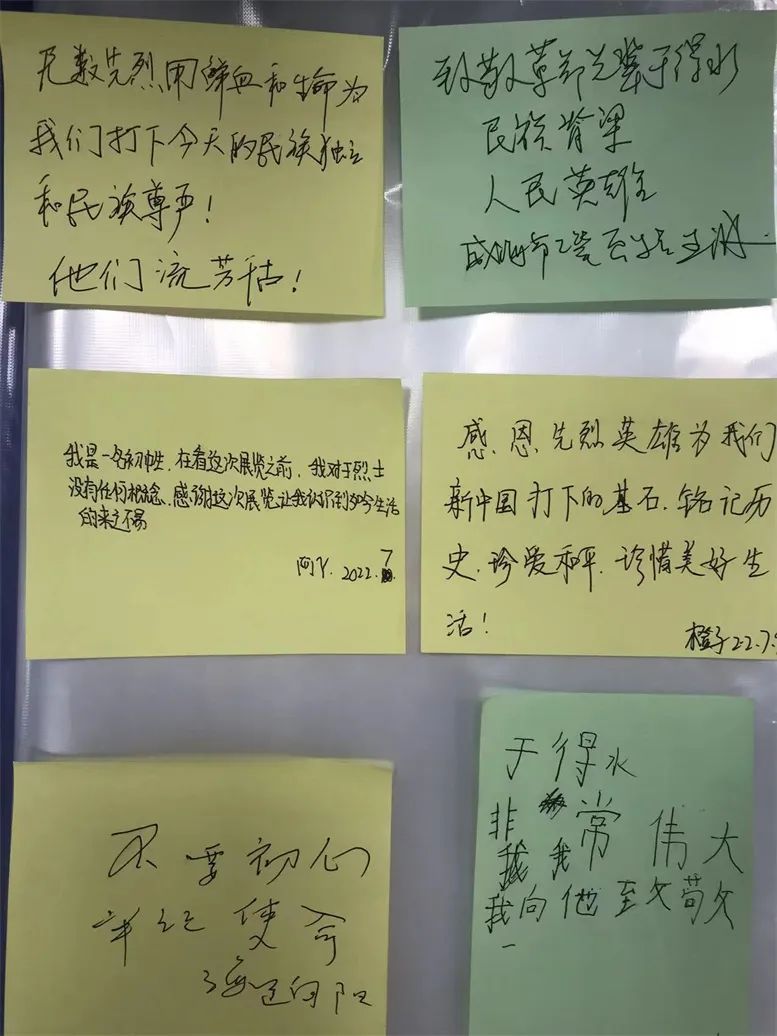 无数先烈用鲜血和生命为
我们打下今天的民族独立
和民族尊严!
他们流芳千古!
致敬革命先辈于得水
民族脊梁
人民英雄
我是一名初中生,在看这次展览之前,我对于烈士
没有任何概念,感谢这次展览让我认识到如今生活
的来之不易
阿丫. 2022.7
感恩先烈英雄为我们
新中国打下的基石.铭记历
史.珍爱和平.珍惜美好生
活!
橙子22.7.9
不要初心
牢记使命
于得水
非常伟大
我向他致敬